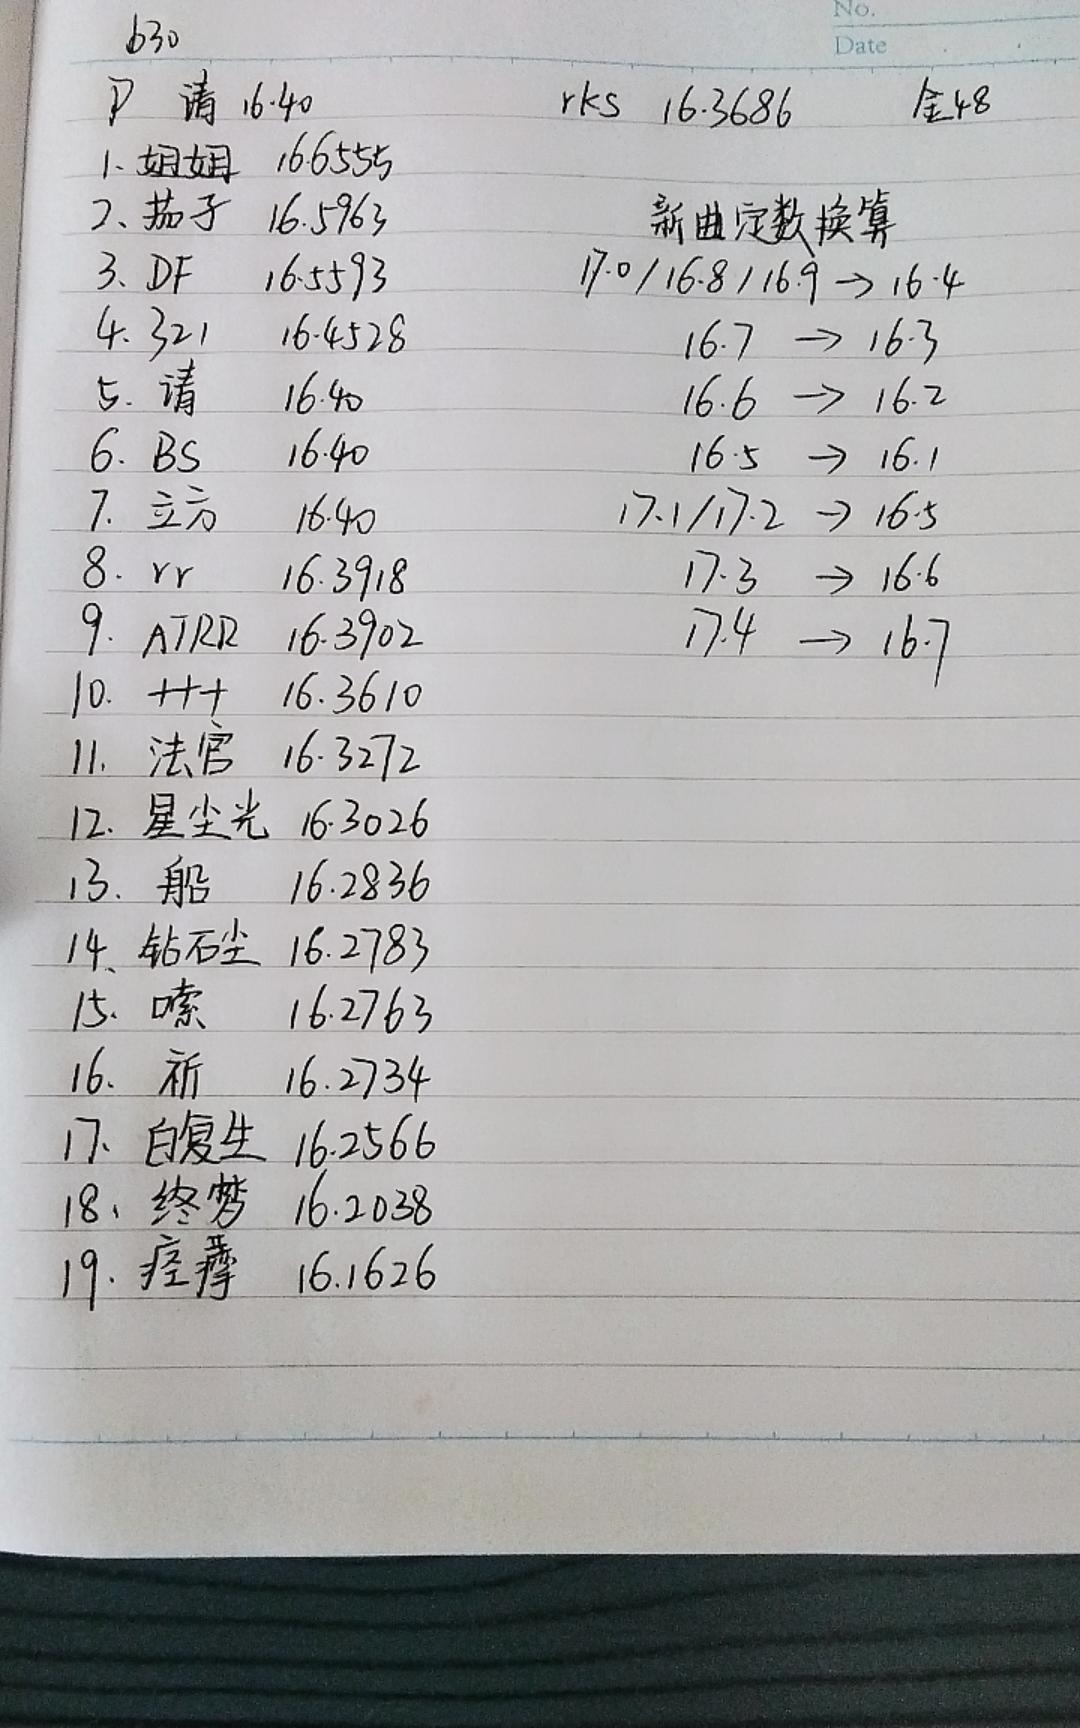 No.
Date
b30
P 请 16.40 rks 16.3686 金48
1. 姐姐 16.6555
2、茄子 16.5963
新曲定数换算
3、DF 16.5593 17.0/16.8/16.9→16.4
4. 321 16.4528 16.7 → 16.3
5. 请 16.40 16.6 → 16.2
6. BS 16.40 16.5 → 16.1
7. 立方 16.40 17.1/17.2 → 16.5
8. rr 16.3918 17.3 → 16.6
9. ATRR 16.3902 17.4 → 16.7
10. +++ 16.3610
11. 法官 16.3272
12. 星尘光 16.3026
13. 船 16.2836
14、钻石尘 16.2783
15. 嗦 16.2763
16. 祈 16.2734
17、白复生 16.2566
18、终梦 16.2038
19. 痉挛 16.1626